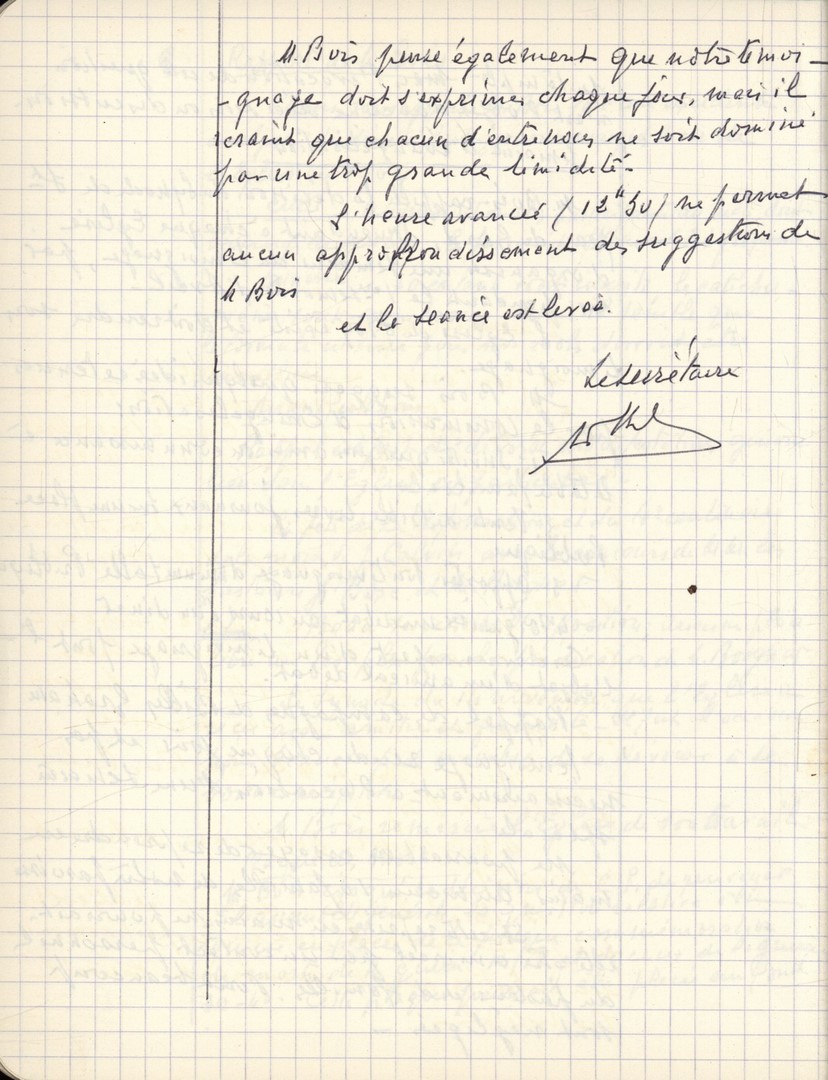 M. Bois pense également que notre témoi-
-gnage doit s'exprimer chaque jour, mais il
craint que chacun d'entre nous ne soit dominé
par une trop grande timidité.
L'heure avancée (12h30) ne permet
aucun approfondissement des suggestions de
M Bois
et la séance est levée.
Le secrétaire